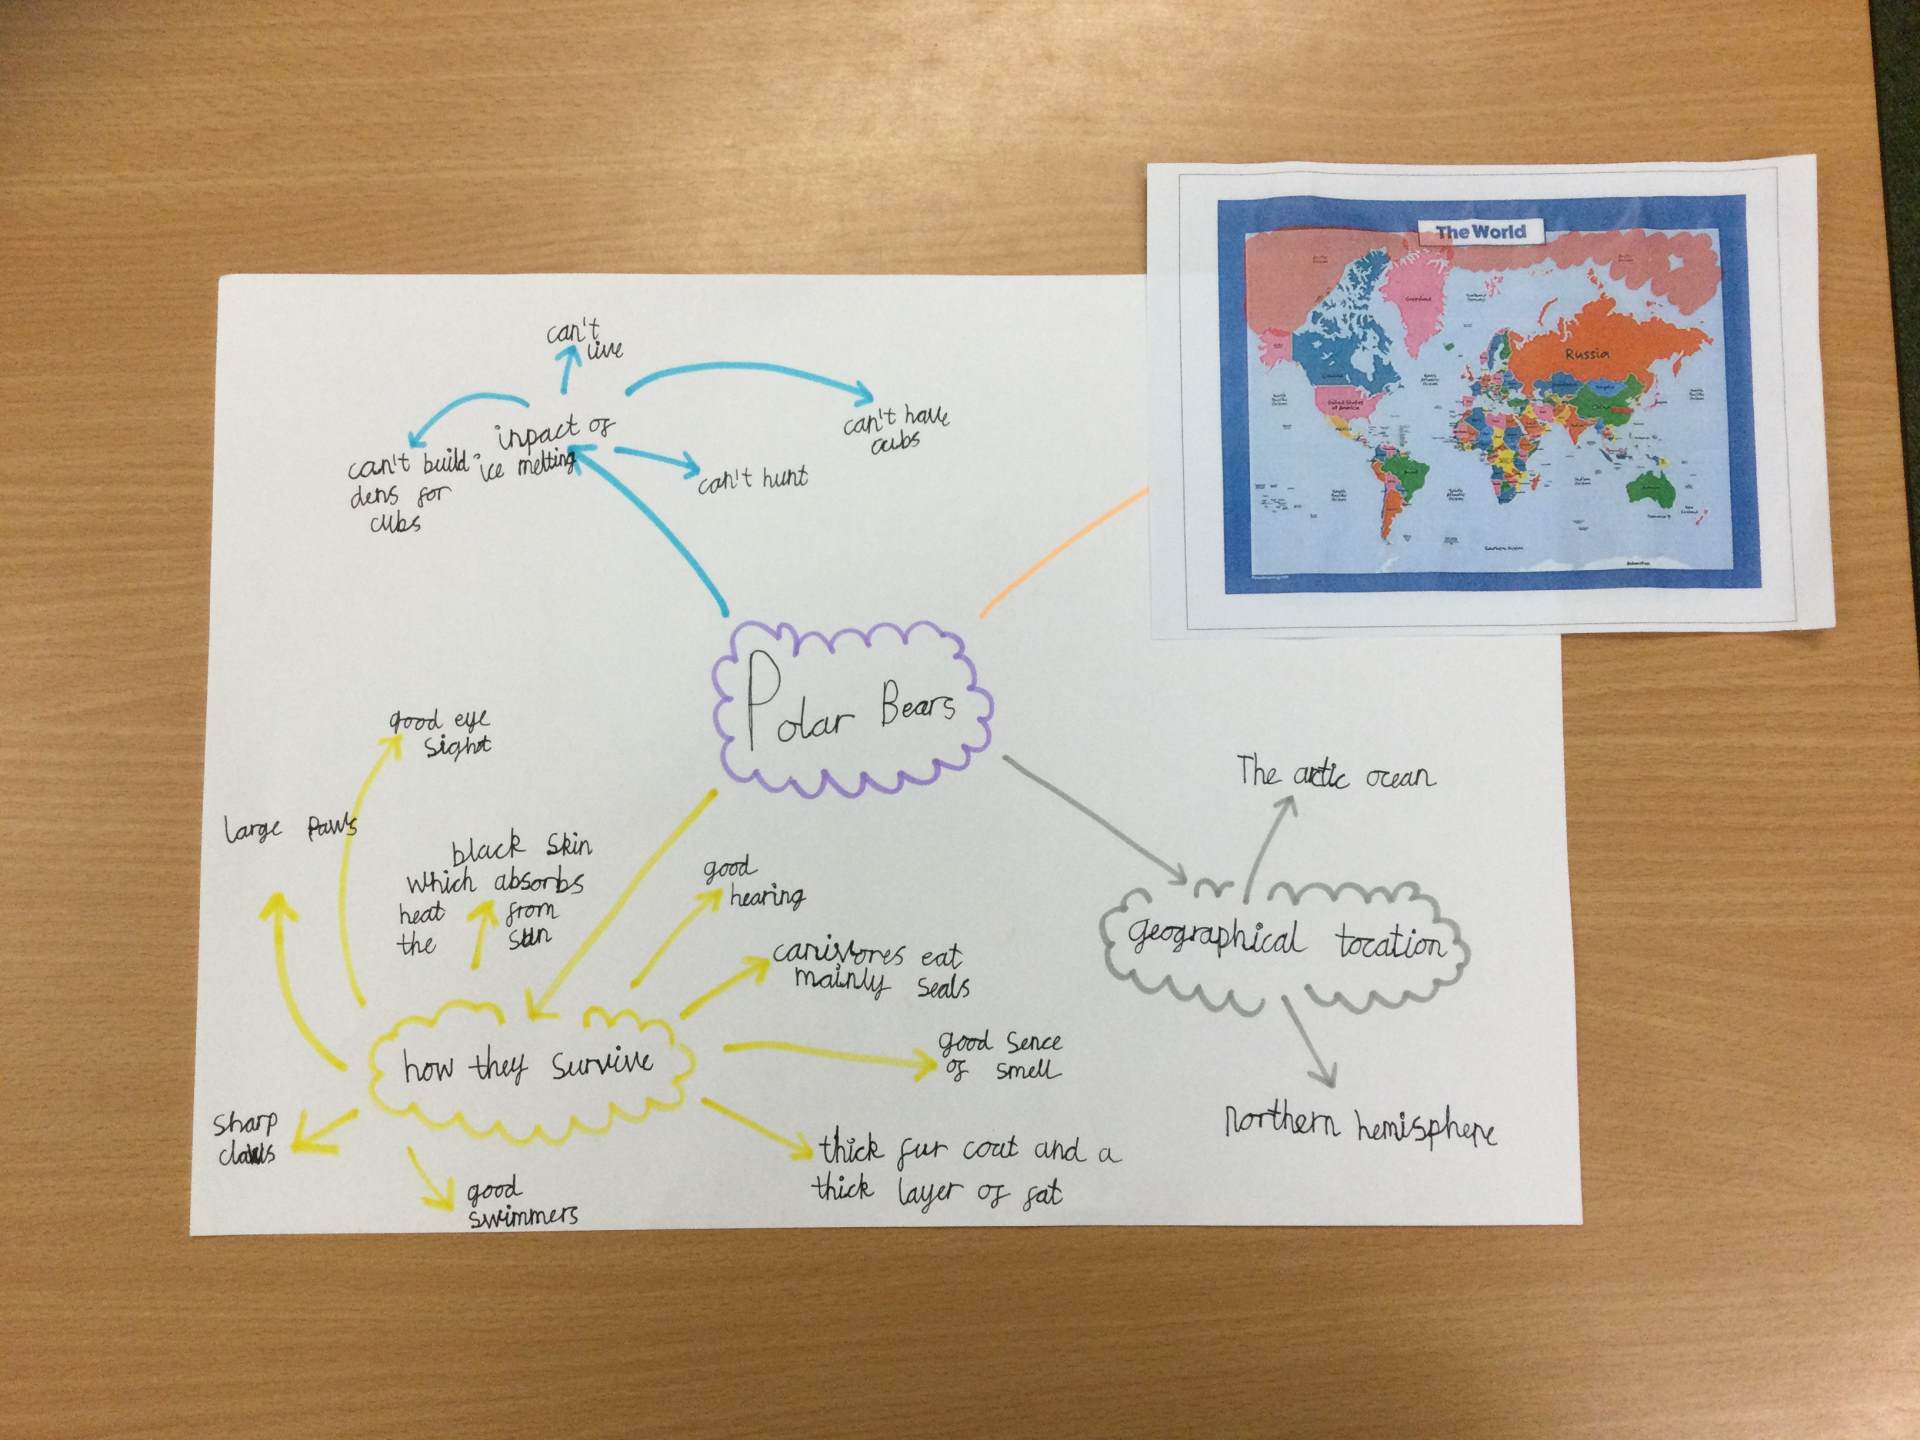 The World
Greenland
Russia
China
United States
of America
Brazil
Southern Ocean
can't
live
inpact of
ice melting
can't build
dens for
cubs
can't have
cubs
can't hunt
Polar Bears
good eye
sight
large paws
black skin
which absorbs
heat from
the sun
good
hearing
carnivores eat
mainly seals
how they survive
good sence
of smell
sharp
claws
good
swimmers
thick fur coat and a
thick layer of fat
The arctic ocean
geographical location
northern hemisphere